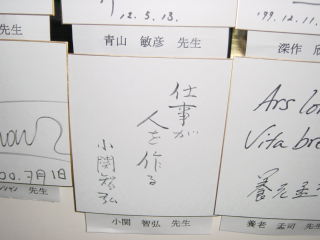 12.5.13.
'99.12.11.
青山 敏彦 先生
深作 欣
仕事が
人を作る
小関智弘
Ars lon
Vita bre
養老孟
00.7月1日
ンシャン 先生
小関 智弘 先生
養老 孟司 先生